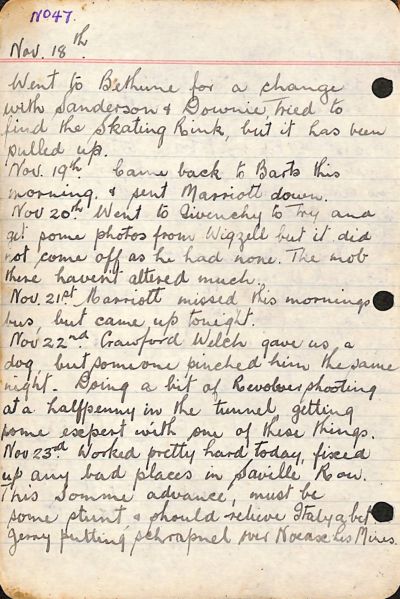 No 47.
Nov. 18th
Went to Bethune for a change
with Sanderson & Downie, tried to
find the Skating Rink, but it has been
pulled up.
Nov. 19th. Came back to Barts this
morning, & sent Marriott down.
Nov 20th Went to Givenchy to try and
get some photos from Wigzell but it did
not come off as he had none. The mob
there haven't altered much.
Nov. 21st Marriott missed this mornings
bus, but came up tonight.
Nov 22nd Crawford Welch gave us a
dog, but someone pinched him the same
night. Doing a bit of Revolver shooting
at a halfpenny in the tunnel, getting
some exspert with one of these things.
Nov 23rd Worked pretty hard today, fixed
up any bad places in Saville Row.
This Somme advance, must be
some stunt, & should relieve Italy a bit.
Jerry putting schrapnel over Noeux les Mines.